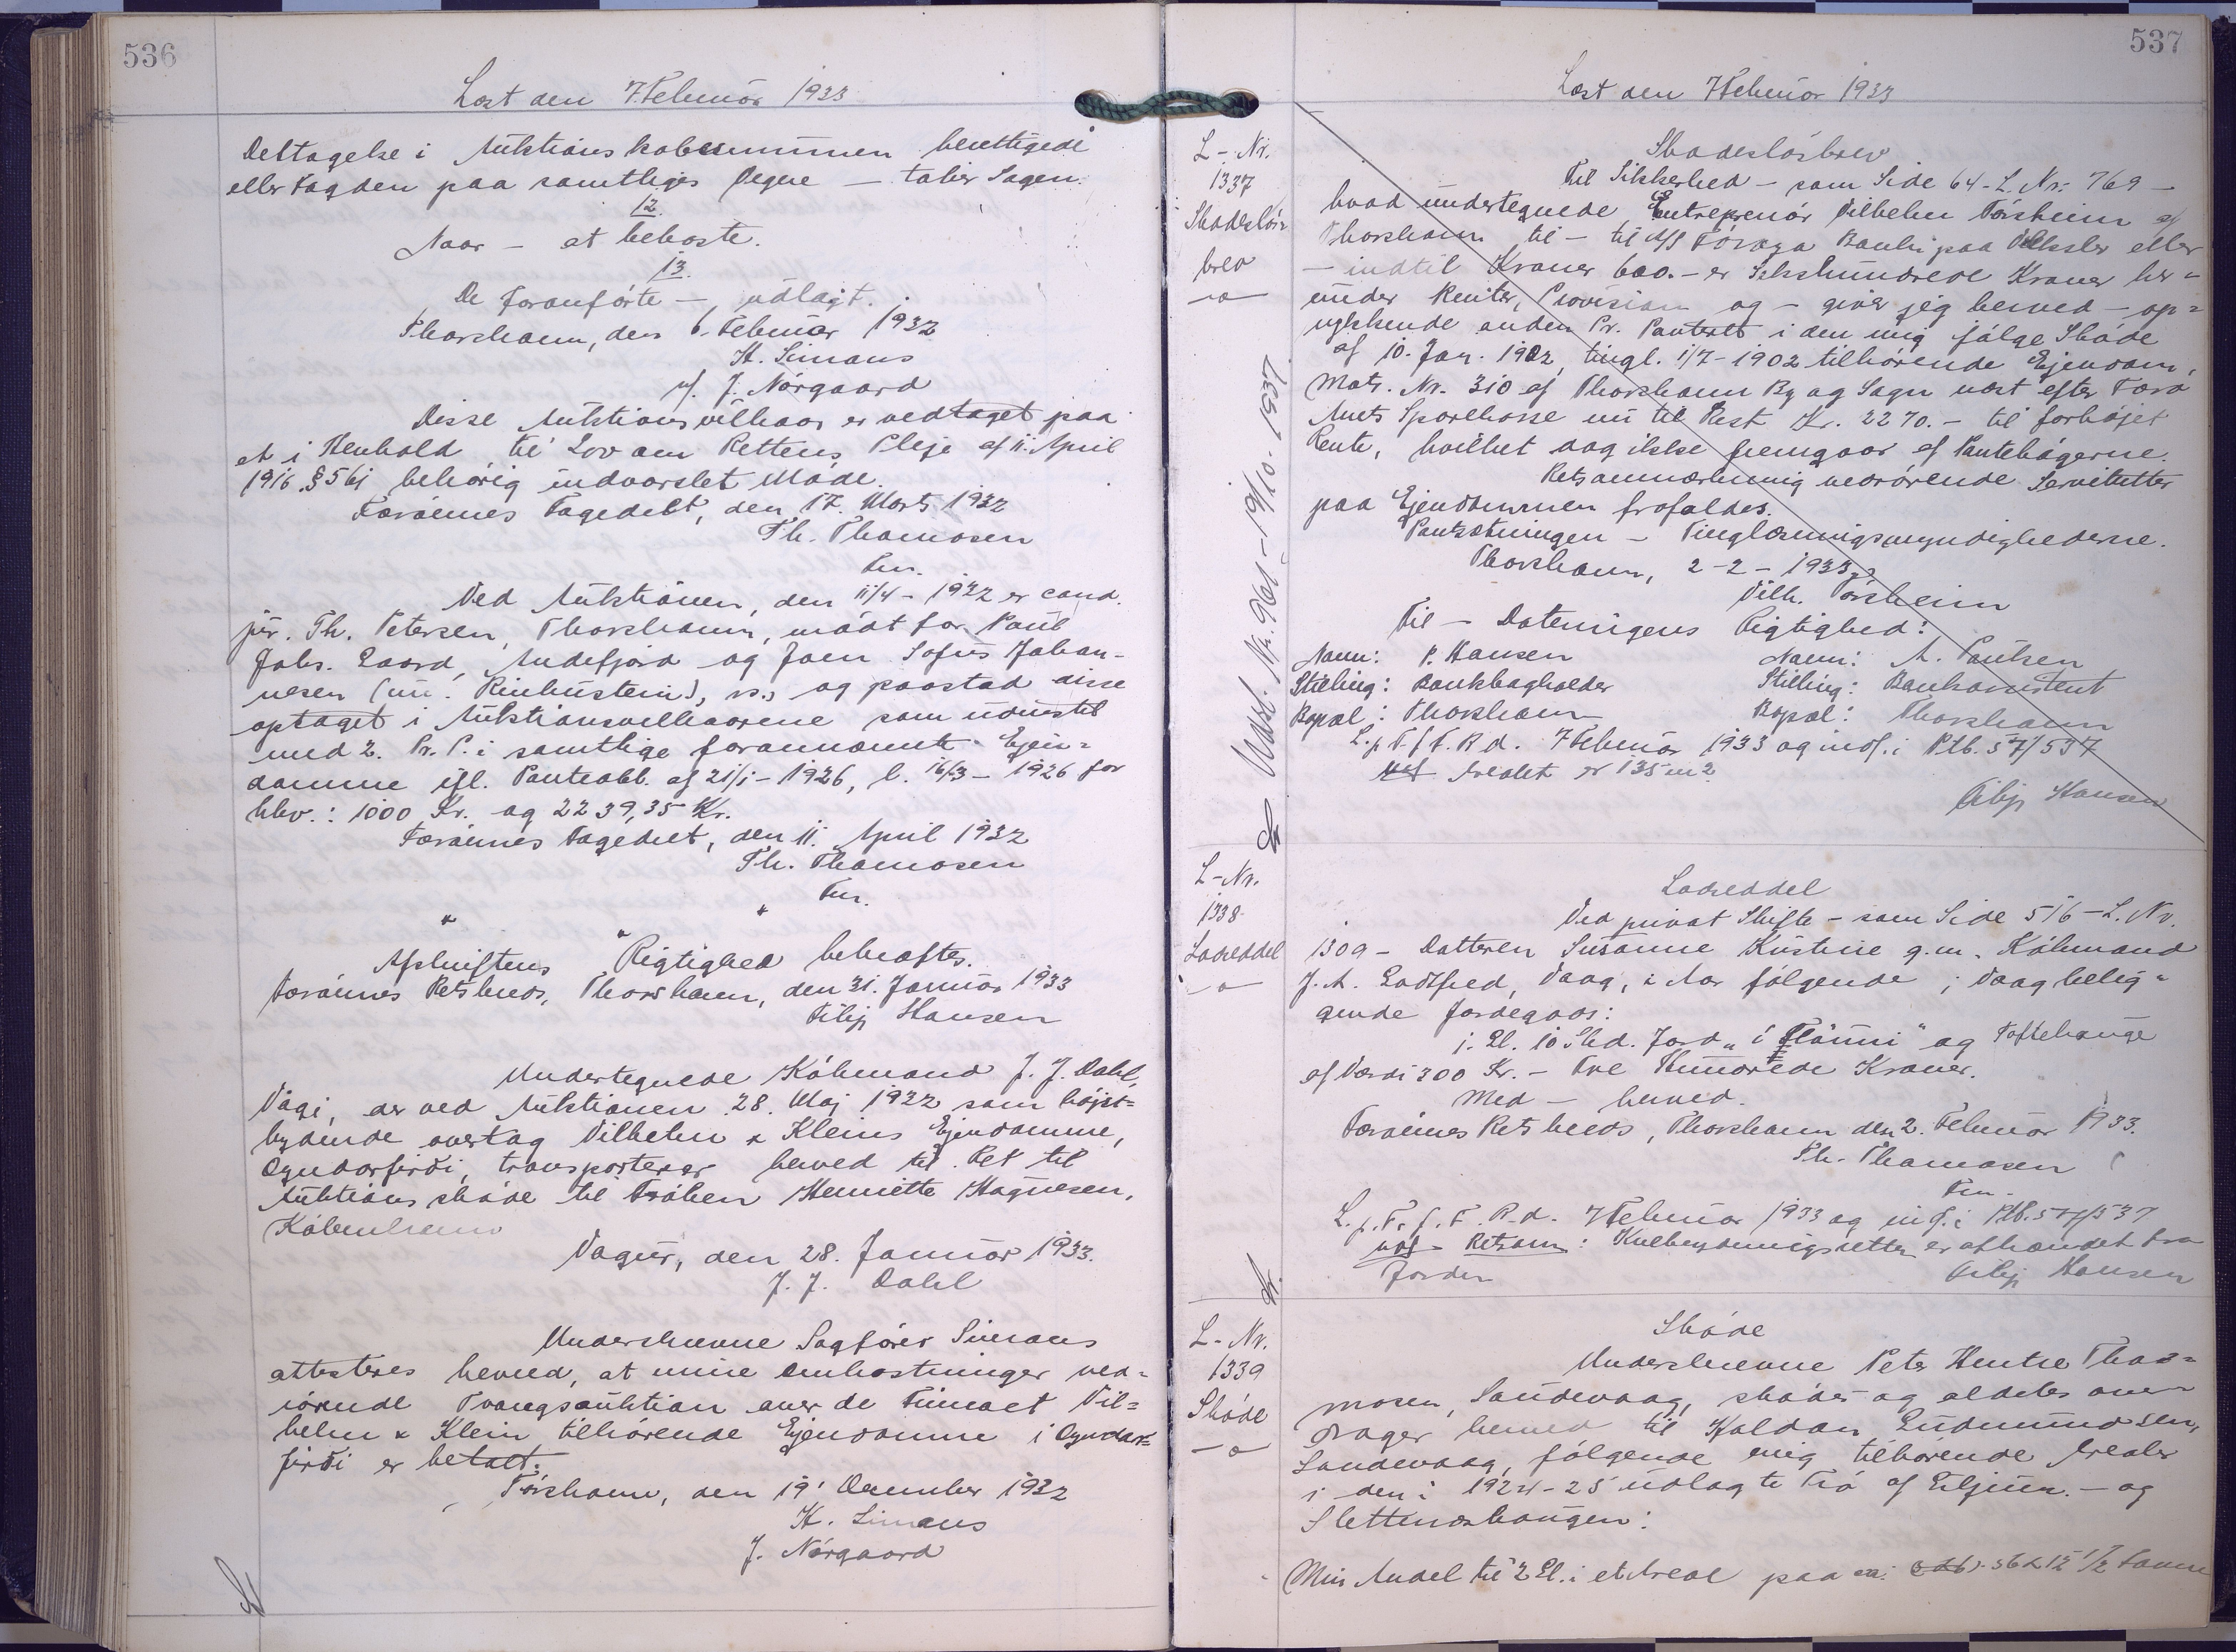 536
Læst den 7. Februar 1933
Deltagelse i Auktionskøbesummen berettigede
eller Fogden paa samtliges Vegne — taber Sagen.
12.
Naar — at bekoste.
13.
De foranførte —, udlagt.
Thorshavn, den 6. Februar 1932
H. Simans
J. Nørgaard
Disse Auktionsvilkaar er vedtaget paa
et i Henhold til Lov om Rettens Pleje af 11. April
1916 § 561 behørig indvarslet Møde.
Færøernes Fogedret, den 17. Marts 1932
Th. Thomasen
Fm.
Ved Auktionen, den 11/4 - 1932 er cand.
jur. Th. Petersen, Thorshavn, mødt for Poul
Johs. Gaard, Andefjord og Joen Sofus Johan-
nesen og paastod disse
optaget i Auktionsvilkaarene som
med 2. Pr. P. i samtlige forannævnte Ejen=
domme ifl. Panteobl. af 21/1 - 1926, l. 16/3 - 1926 for
hhv.: 1000 Kr. og 2239,35 Kr.
Færøernes Fogedret, den 11. April 1932
Th. Thomasen
Fm.
" " "
Afskriftens Rigtighed bekræftes.
Færøernes Retskreds, Thorshavn, den 31. Januar 1933
Filip Hansen
Undertegnede Købmand J. J. Dahl,
Vági, der ved Auktionen 28. Maj 1932 som højst=
bydende overtog Vilhelm x Kleins Ejendomme,
Oyndarfirði, transporterer herved til Ret til
Auktionsskøde til Frøken Henriette Magnesen,
København
Vagur, den 28. Januar 1933.
J. J. Dahl
Underskrevne Sagfører Simans
attesteres herved, at mine Omkostninger ved=
rørende Tvangsauktion over de Firmaet Vil=
helm x Klein tilhørende Ejendomme i Oyndar=
firði er betalt.
Tórshavn, den 19' December 1932
H. Simans
J. Nørgaard
537
Læst den 7 Februar 1933
L-Nr.
1337
Skadesløs
brev
—o—
Udsl. Nr. 961 - 19/10. 1937.
Skadesløsbrev
Til Sikkerhed — som Side 64 - L. Nr: 769 —
hvad undertegnede Entreprenør Vilhelm Tórsheim af
Thorshavn til — til A/S Føroya Banki paa Veksler eller
— indtil Kroner 600.- er Sekshundrede Kroner her=
under Renter, Provision og — giver jeg herved — op=
rykkende anden Pr. Panteret i den mig ifølge Skøde
af 10. Jan. 1902, tingl. 1/7 - 1902 tilhørende Ejendom,
Matr. Nr. 310 af Thorshavn By og Sogn næst efter Færø
Amts Sparekasse nu til Rest Kr. 2270.- til forhøjet
Rente, hvilket dog ikke fremgaar af Pantebøgerne.
Retsanmærkning vedrørende Servitutter
paa Ejendommen frafaldes.
Pantsætningen — Tinglæsningsmyndighederne.
Thorshavn, 2-2-1933
Vilh. Tórsheim
Til — Dateringens Rigtighed:
Navn: P. Hansen Navn: A. Poulsen
Stilling: Bankbogholder Stilling: Bankassistent
Bopæl: Thorshavn Bopæl: Thorshavn
L. p. T. f. F. R d. 7 Februar 1933 og indf. i Ptb. 57/537
Arealet er 135 m2
Filip Hansen
L-Nr.
1338
Lodseddel
—o—
Lodseddel
Ved privat Skifte — som Side 516 - L. Nr.
1309 — Datteren Susanne Kristine g.m. Købmand
J. A. Godtfred, Vaag, følgende i Vaag belig=
gende Jordegods:
1 Gl. 10 Skd. Jord og Toftehauge
af Værdi 300 Kr. — Tre Hundrede Kroner.
Med — herved.
Færøernes Retskreds, Thorshavn den 2. Februar 1933.
Th. Thomasen
Fm.
L. p. T. f. F. R. d. 7 Februar 1933 og indf. i Ptb. 57/537
Retsanm: Kulbrydningsretten er afhændet fra
Jorden Filip Hansen
L-Nr.
1339
Skøde
—o—
Skøde
Underskrevne Peter Thom=
mosen, Sandevaag, skøder og aldeles over
drager herved til Haldan Gudmundsen,
Sandevaag, følgende mig tilhørende Arealer
i den i 1924-25 udlagte Trø af —og
:
Min Andel til 2 Gl. i et Areal paa 56 x 12 1/2 Favne